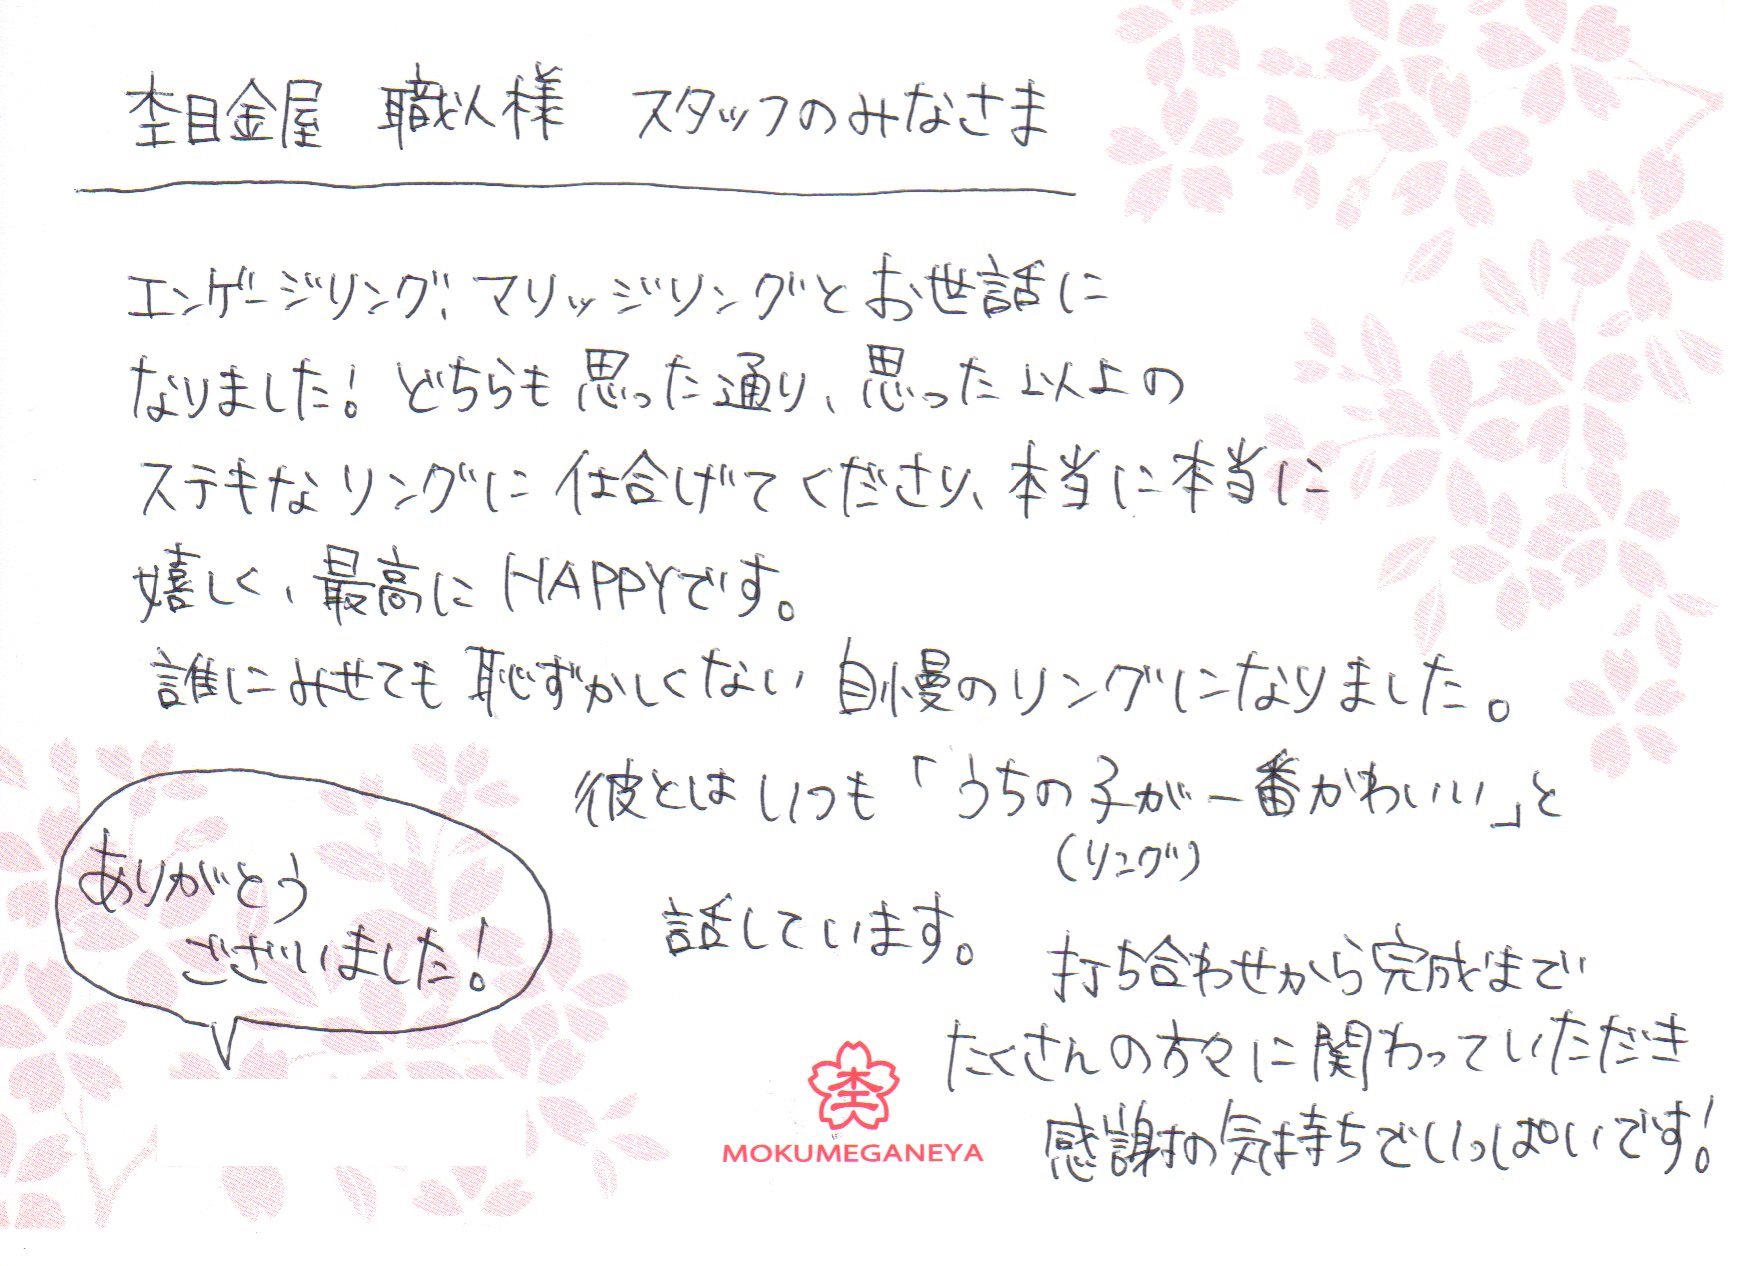 杢目金屋 職人様 スタッフのみなさま
エンゲージリング、マリッジリングとお世話に
なりました! どちらも思った通り、思った以上の
ステキなリングに仕上げてくださり、本当に本当に
嬉しく、最高にHAPPYです。
誰にみせても恥ずかしくない自慢のリングになりました。
彼とはいつも「うちの子が一番かわいい」と
(リング)
話しています。
打ち合わせから完成まで
たくさんの方々に関わっていただき
感謝の気持ちでいっぱいです!
ありがとう
ございました!
杢
MOKUMEGANEYA